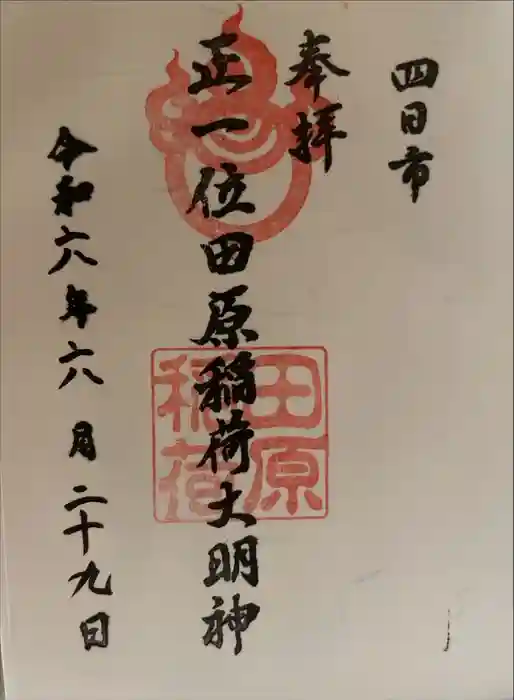 四日市
奉拝
正一位田原稲荷大明神
田原
稲荷
令和六年六月二十九日